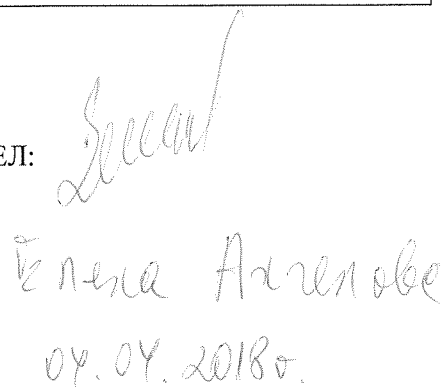 ЕЛ:
Елена Ангелова
04.04.2018г.